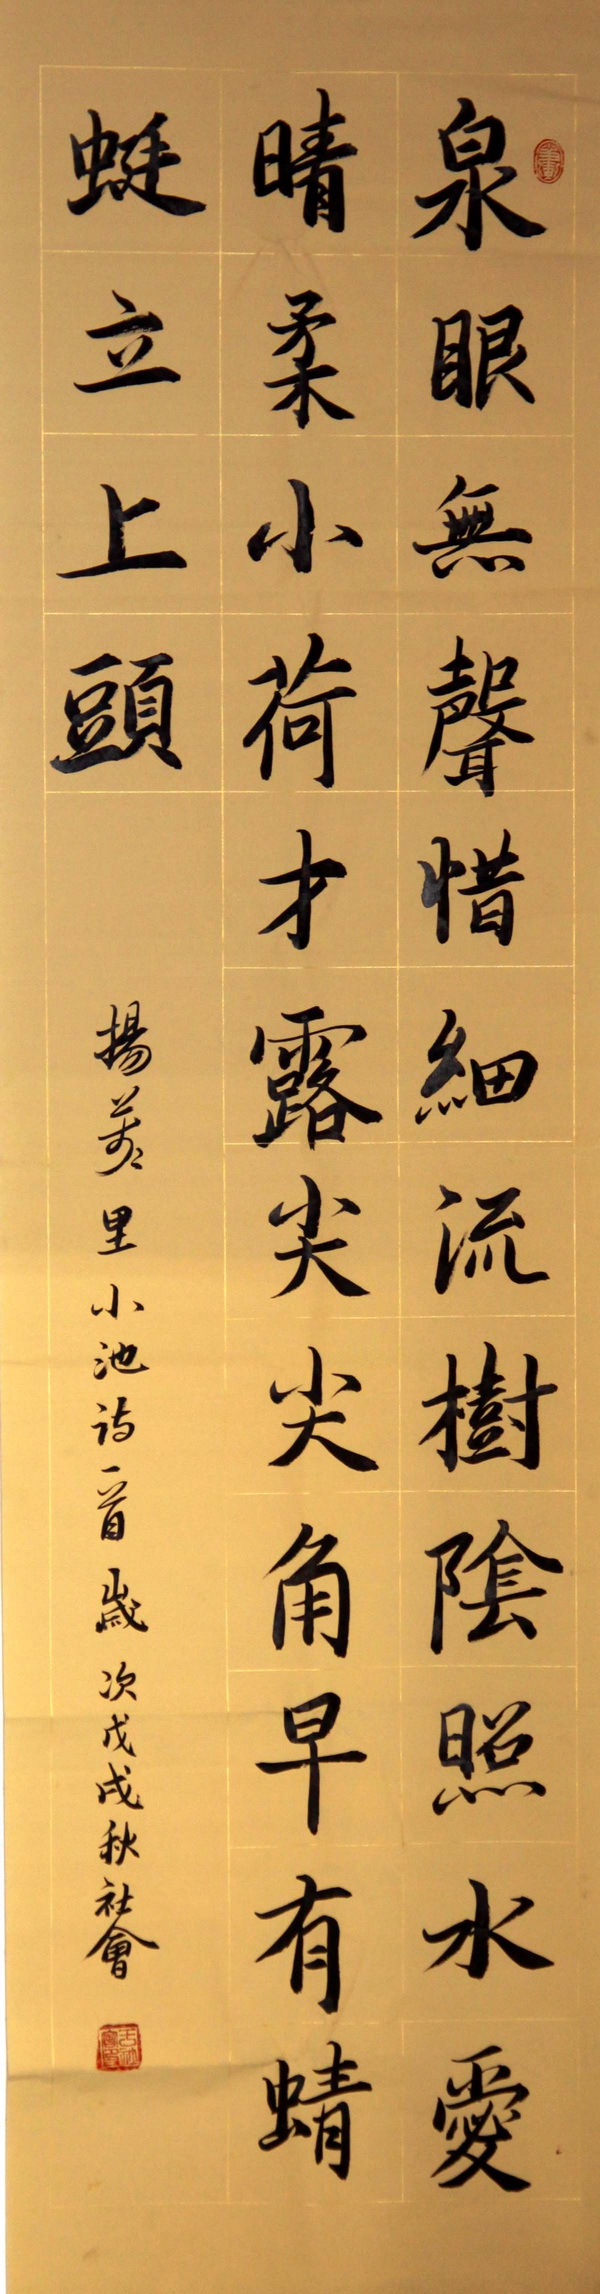 泉眼無聲惜細流樹陰照水愛
晴柔小荷才露尖尖角早有蜻
蜓立上頭
揚萬里小池詩一首歲次戊戌秋社會